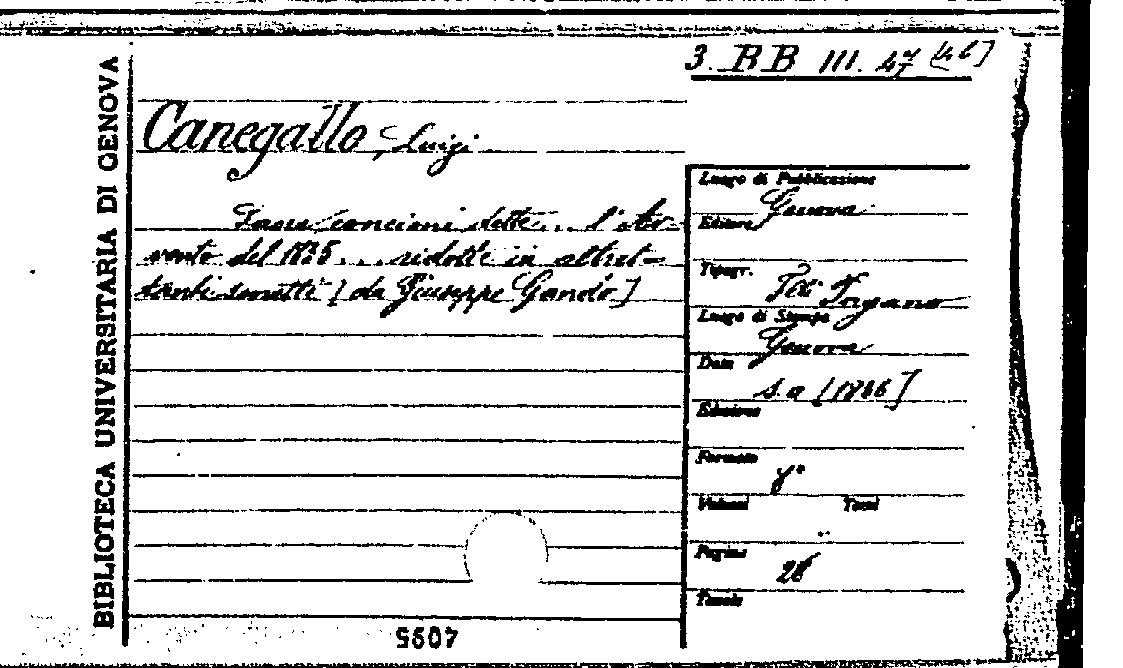 3. BB III. 47 [46]
BIBLIOTECA UNIVERSITARIA DI GENOVA
Canegallo, Luigi
concioni dette... l'Av-
vento del 1835... ridotte in altret-
tanti sonetti [da Giuseppe Gando]
Luogo di Pubblicazione
Genova
Editore
Tipogr.
Tip. Pagano
Luogo di Stampa
Genova
Data
s. a [1836]
Edizione
Formato
8°
Volumi Tomi
Pagine
28
Tavole